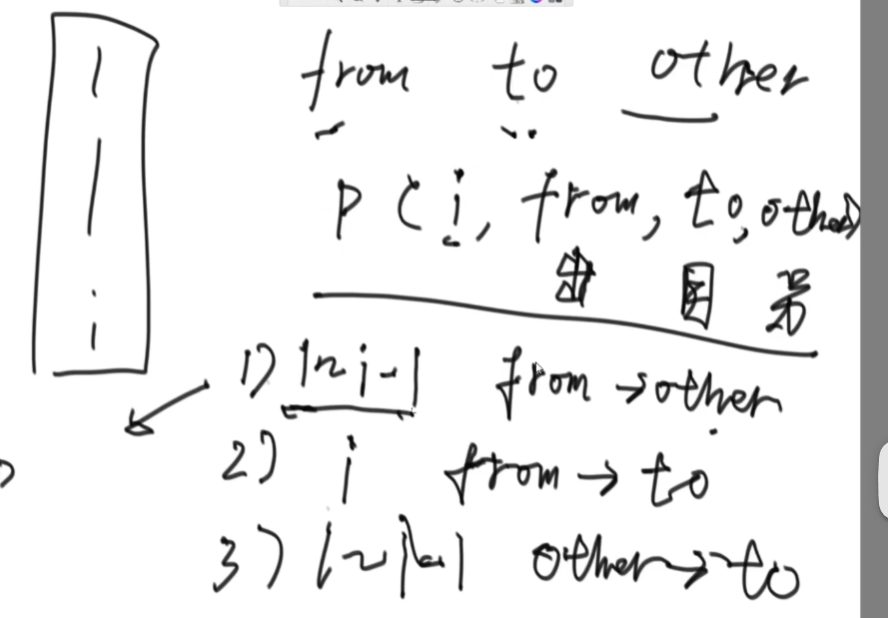 from to other
p(i, from, to, other)
1) 1~i-1 from→other
2) i from→to
3) 1~i-1 other→to